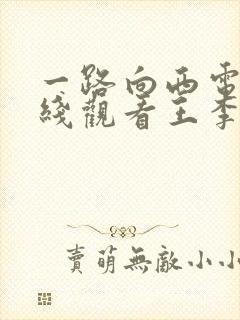 一路向西電
綫觀看王李
賣萌無敵小小